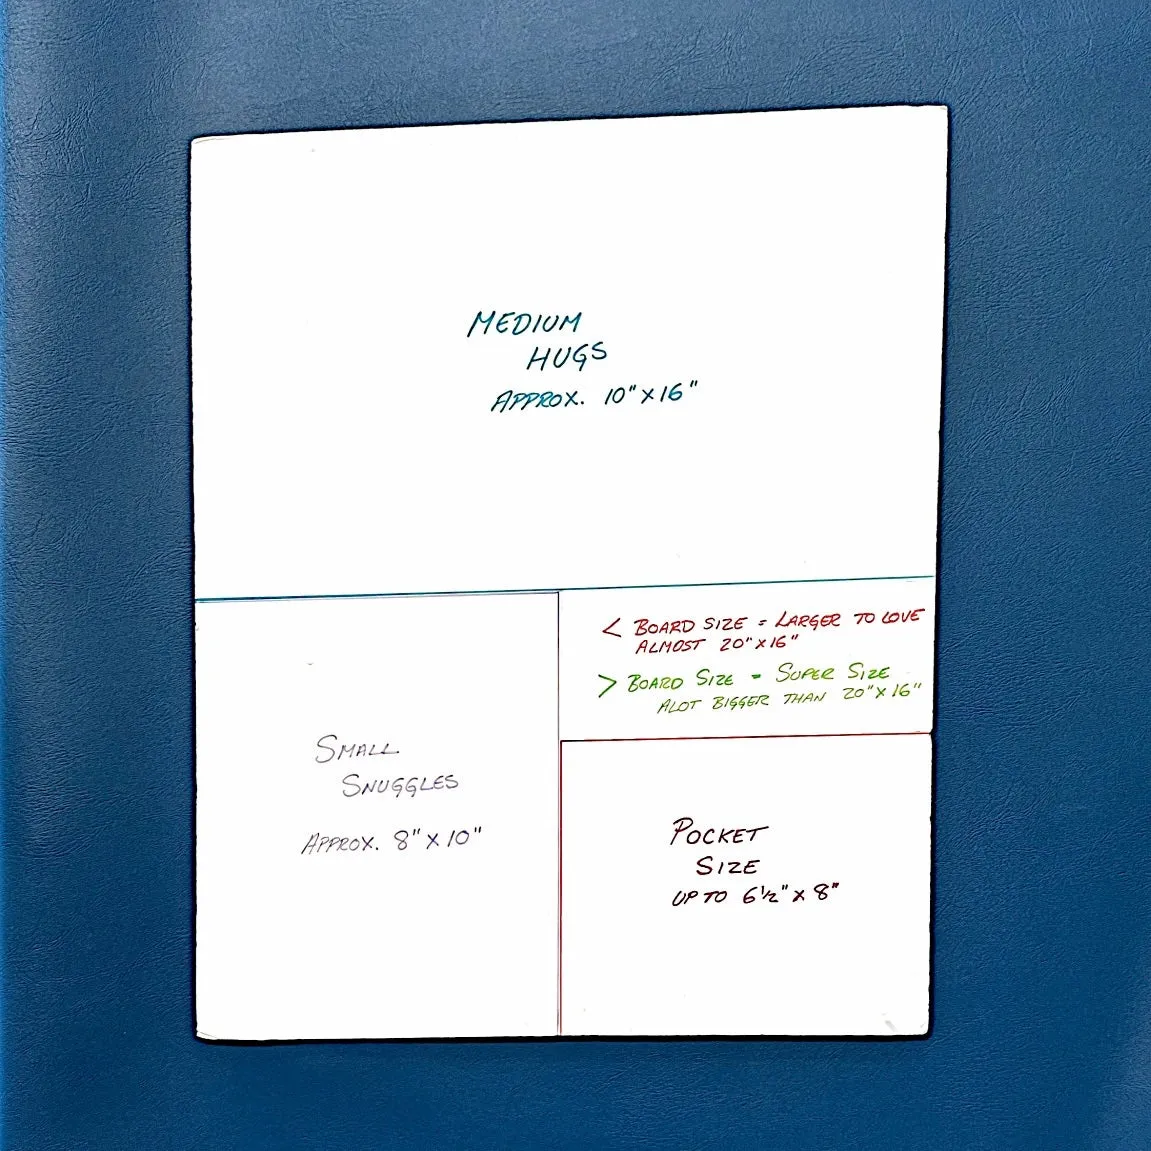 MEDIUM
HUGS
APPROX. 10" X 16"
< BOARD SIZE = LARGER TO LOVE
ALMOST 20" X 16"
> BOARD SIZE = SUPER SIZE
ALOT BIGGER THAN 20" X 16"
SMALL
SNUGGLES
APPROX. 8" X 10"
POCKET
SIZE
UP TO 6 1/2" X 8"